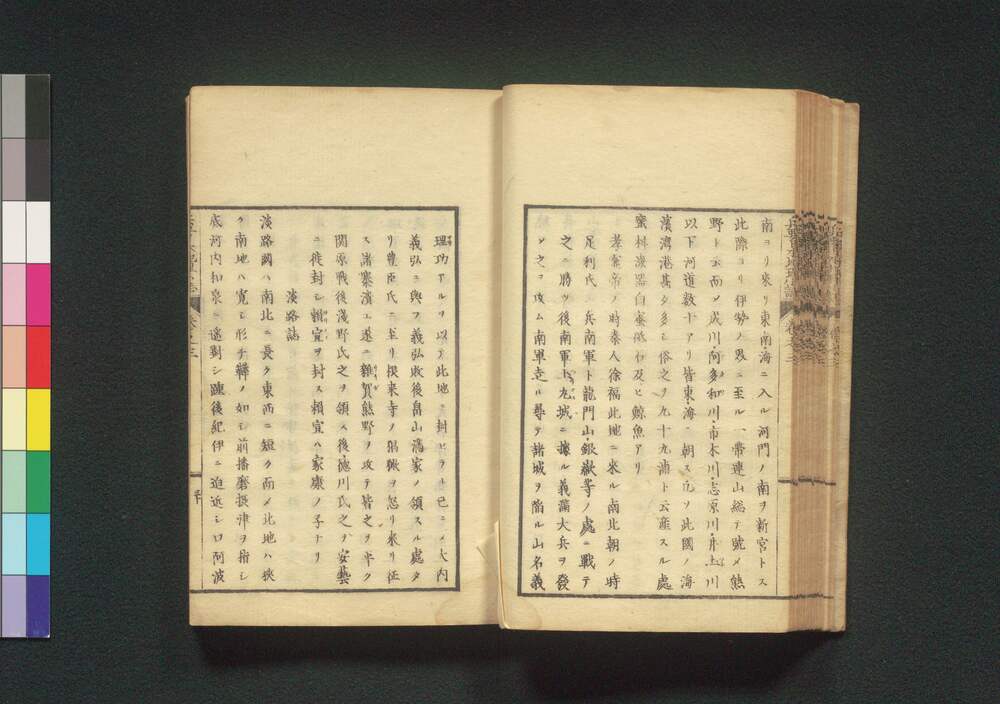 南ヨリ來リ東南海ニ入ル河門ノ南ヲ新宮トス
此際ヨリ伊勢ノ界ニ至ル一帶連山総テ號メ熊
野ト云而メ成川・阿多和川・市木川・志原川・井土川
以下河道數十アリ皆東海ニ朝ス凡ソ此國ノ海
濱灣港甚タ多シ俗之ヲ九十九浦ト云産スル處
蜜柑漆器白炭砥石及ヒ鯨魚アリ
孝霊帝ノ時秦人徐福此地ニ來ル南北朝ノ時
足利氏ノ兵南軍ト龍門山・銀嶽等ノ處ニ戰テ
之ニ勝ツ後南軍土丸城ニ據ル義滿大兵ヲ發
シ之ヲ攻ム南軍走ル尋テ諸城ヲ陷ル山名義
理功アルヲ以テ此地ニ封セラル已ニメ大内
義弘ニ與フ義弘敗後畠山滿家ノ領スル處タ
リ豊臣氏ニ至リ根来寺ノ猖獗ヲ怒リ來リ征
ス諸寨潰ユ遂ニ雜賀熊野ヲ攻テ皆之ヲ平ク
関原戰後淺野氏之ヲ領ス後徳川氏之ヲ安藝
ニ徙封シ頼宣ヲ封ス頼宣ハ家康ノ子ナリ
淡路誌
淡路國ハ南北ニ長ク東西ニ短ク而メ北地ハ狹
ク南地ハ寛シ形チ鞾ノ如シ前播磨摂津ヲ指シ
底河内和泉ニ遥對シ踵後紀伊ニ迫近シロ阿波
卷之三